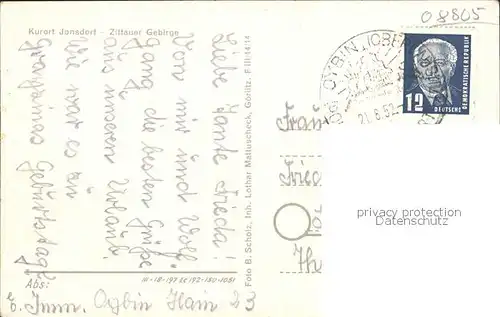 08805
Kurort Jonsdorf - Zittauer Gebirge
Liebe Tante Freda!
Von mir und Wolf-
gang die besten Grüße
aus unserem Urlaub!
Wie war es zu
Geburtstag?
Foto B. Scholz, Inh. Lothar Mattuscheck, Görlitz. F III/14/14
III-18-197
Abs:
Imm. Oybin Hain 23
OYBIN
21.8.52
12
DEUTSCHE
DEMOKRATISCHE REPUBLIK
Frau
Frie
Th
privacy protection
Datenschutz